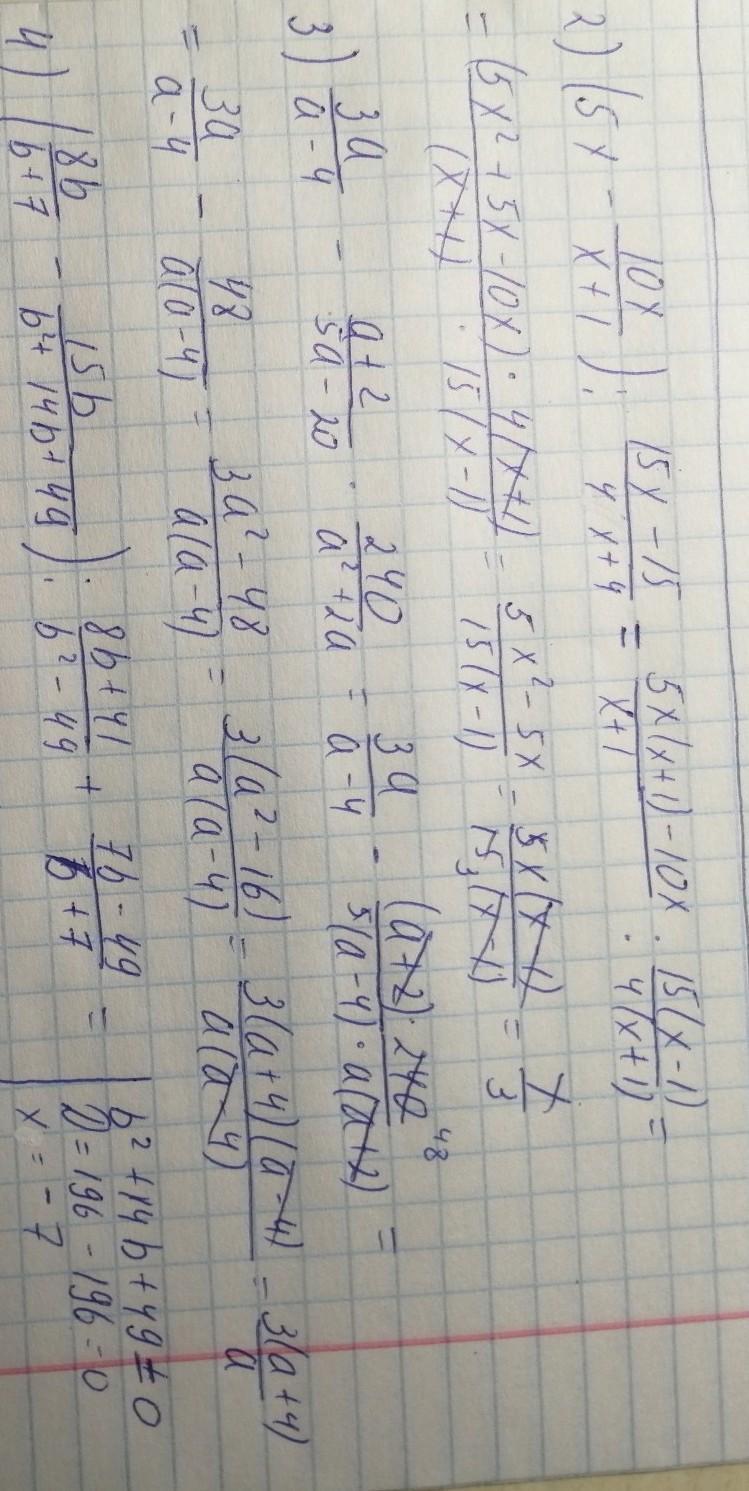 2) (5x - \frac{10x}{x+1}) : \frac{15x-15}{4x+4} = \frac{5x(x+1)-10x}{x+1} : \frac{15(x-1)}{4(x+1)} =
= \frac{(5x^2+5x-10x) \cdot 4(x+1)}{(x+1) \cdot 15(x-1)} = \frac{5x^2-5x}{15(x-1)} = \frac{5x(x-1)}{15_3(x-1)} = \frac{x}{3}
3) \frac{3a}{a-4} - \frac{a+2}{5a-20} \cdot \frac{240}{a^2+2a} = \frac{3a}{a-4} - \frac{(a+2) \cdot 240^{48}}{5(a-4) \cdot a(a+2)} =
= \frac{3a}{a-4} - \frac{48}{a(a-4)} = \frac{3a^2-48}{a(a-4)} = \frac{3(a^2-16)}{a(a-4)} = \frac{3(a+4)(a-4)}{a(a-4)} = \frac{3(a+4)}{a}
4) (\frac{8b}{b+7} - \frac{15b}{b^2+14b+49}) : \frac{8b+41}{b^2-49} + \frac{7b-49}{b+7} =
b^2+14b+49=0
D=196-196=0
x=-7